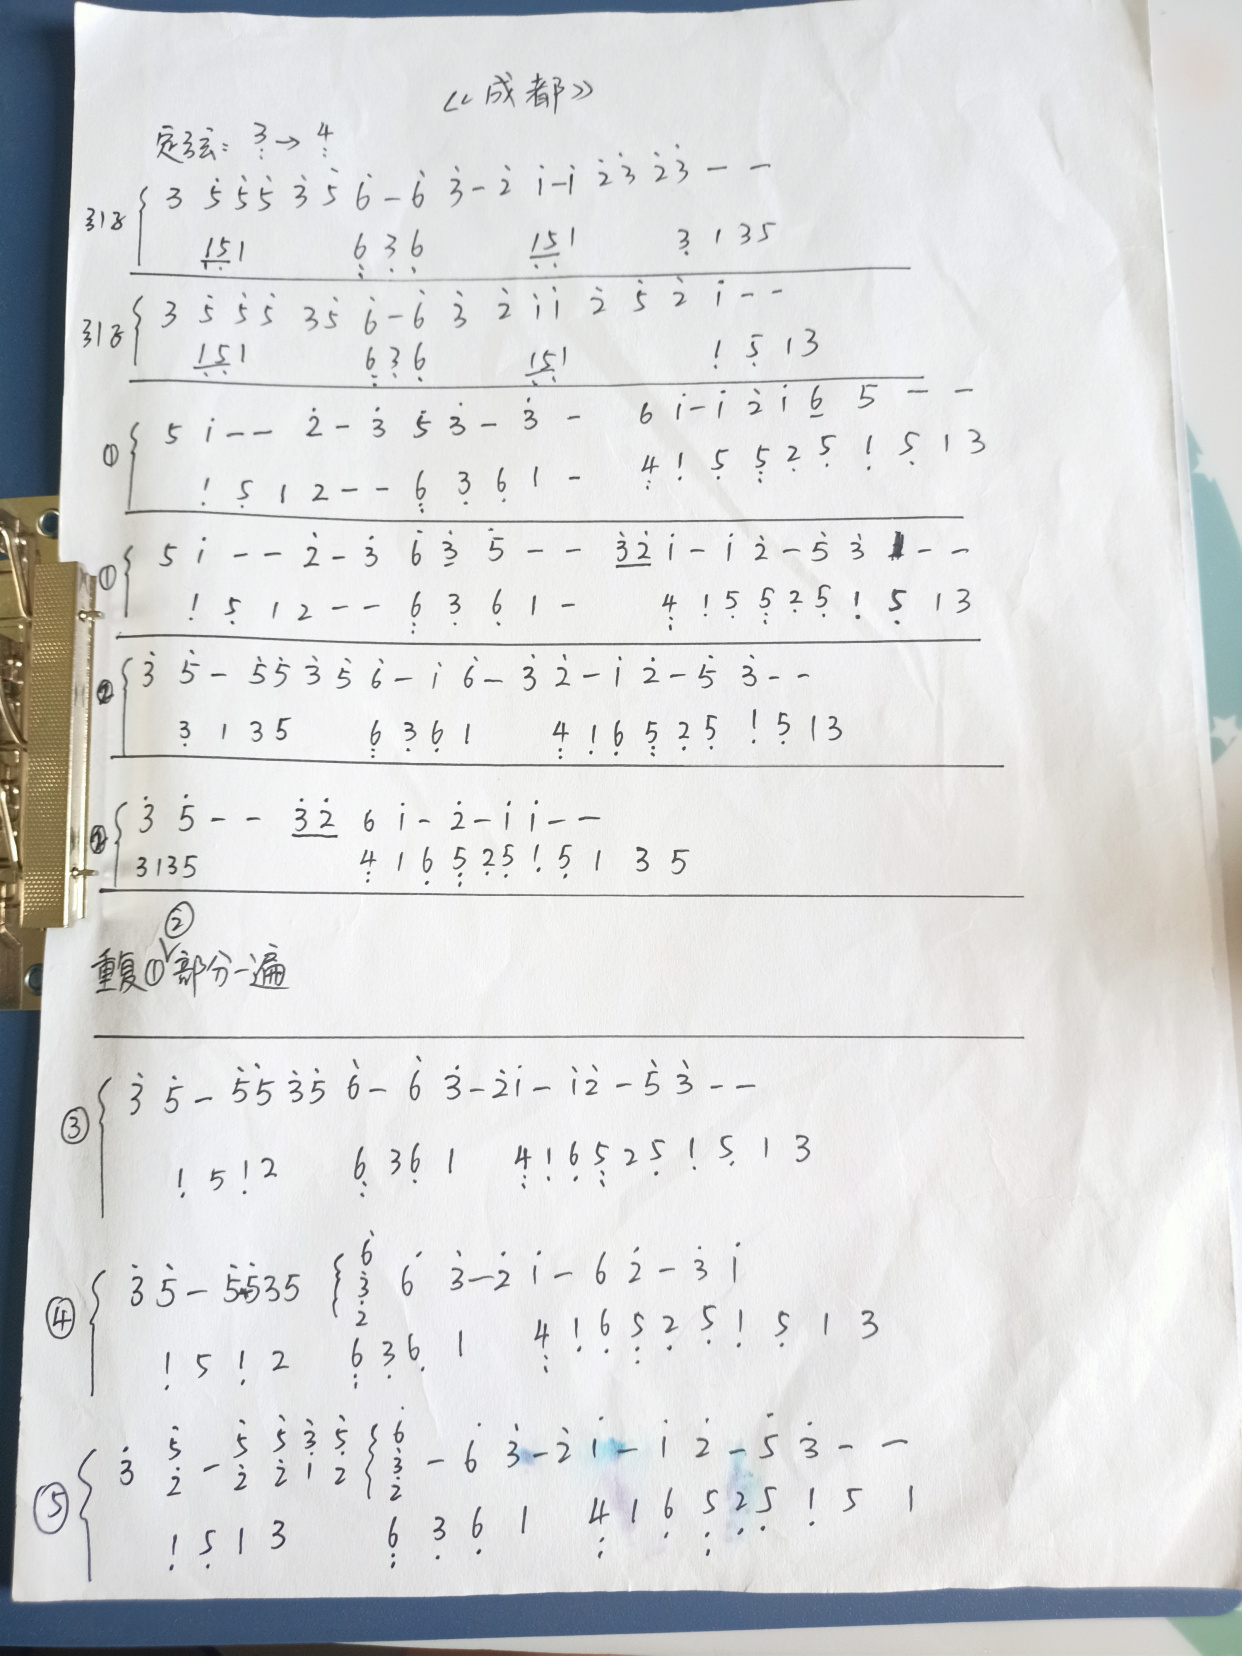 《成都》
定弦: 3̣ → 4̤
引子 { 3 5̇ 5̇ 5̇ 3̇ 5̇ 6̇ - 6̇ 3̇ - 2̇ i - i 2̇ 3̇ 2̇ 3̇ - -
1̣ 5̣ 1 6̤ 3̣ 6̣ 1̣ 5̣ 1 3̣ 1 3 5
引子 { 3 5̇ 5̇ 5̇ 3 5̇ 6̇ - 6̇ 3̇ 2̇ i i 2̇ 5̇ 2̇ i - -
1̣ 5̣ 1 6̤ 3̣ 6̣ 1̣ 5̣ 1 1̣ 5̣ 1 3
① { 5 i - - 2̇ - 3̇ 5̇ 3̇ - 3̇ - 6 i - i 2̇ i 6 5 - -
1̣ 5̣ 1 2 - - 6̤ 3̣ 6̣ 1 - 4̤ 1̣ 5̣ 5̤ 2̣ 5̣ 1̣ 5̣ 1 3
① { 5 i - - 2̇ - 3̇ 6̇ 3̇ 5̇ - - 3̇ 2̇ i - i 2̇ - 5̇ 3̇ - -
1̣ 5̣ 1 2 - - 6̤ 3̣ 6̣ 1 - 4̤ 1̣ 5̣ 5̤ 2̣ 5̣ 1̣ 5̣ 1 3
② { 3̇ 5̇ - 5̇ 5̇ 3̇ 5̇ 6̇ - i 6̇ - 3̇ 2̇ - i 2̇ - 5̇ 3̇ - -
3̣ 1 3 5 6̤ 3̣ 6̣ 1 4̤ 1̣ 6̣ 5̤ 2̣ 5̣ 1̣ 5̣ 1 3
② { 3̇ 5̇ - - 3̇ 2̇ 6 i - 2̇ - i i - -
3 1 3 5 4̤ 1 6̣ 5̤ 2̣ 5̣ 1̣ 5̣ 1 3 5
重复①②部分一遍
③ { 3̇ 5̇ - 5̇ 5̇ 3̇ 5̇ 6̇ - 6̇ 3̇ - 2̇ i - i 2̇ - 5̇ 3̇ - -
1̣ 5 1̣ 2 6̤ 3 6̣ 1 4̤ 1̣ 6̣ 5̤ 2 5̣ 1̣ 5̣ 1 3
④ { 3̇ 5̇ - 5̇ 5̇ 3 5 { 6̇ 3̇ 2̇ 6̇ 3̇ - 2̇ i - 6 2̇ - 3̇ i
1̣ 5 1̣ 2 6̤ 3̣ 6̣ 1 4̤ 1̣ 6̣ 5̤ 2̣ 5̣ 1̣ 5̣ 1 3
⑤ { 3̇ 5̇ 2̇ - 5̇ 2̇ 5̇ 2̇ 3̇ 1̇ 5̇ 2̇ { 6̇ 3̇ 2̇ - 6̇ 3̇ - 2̇ i - i 2̇ - 5̇ 3̇ - -
1̣ 5̣ 1 3 6̤ 3̣ 6̣ 1 4̤ 1 6̣ 5̤ 2̣ 5̣ 1̣ 5 1